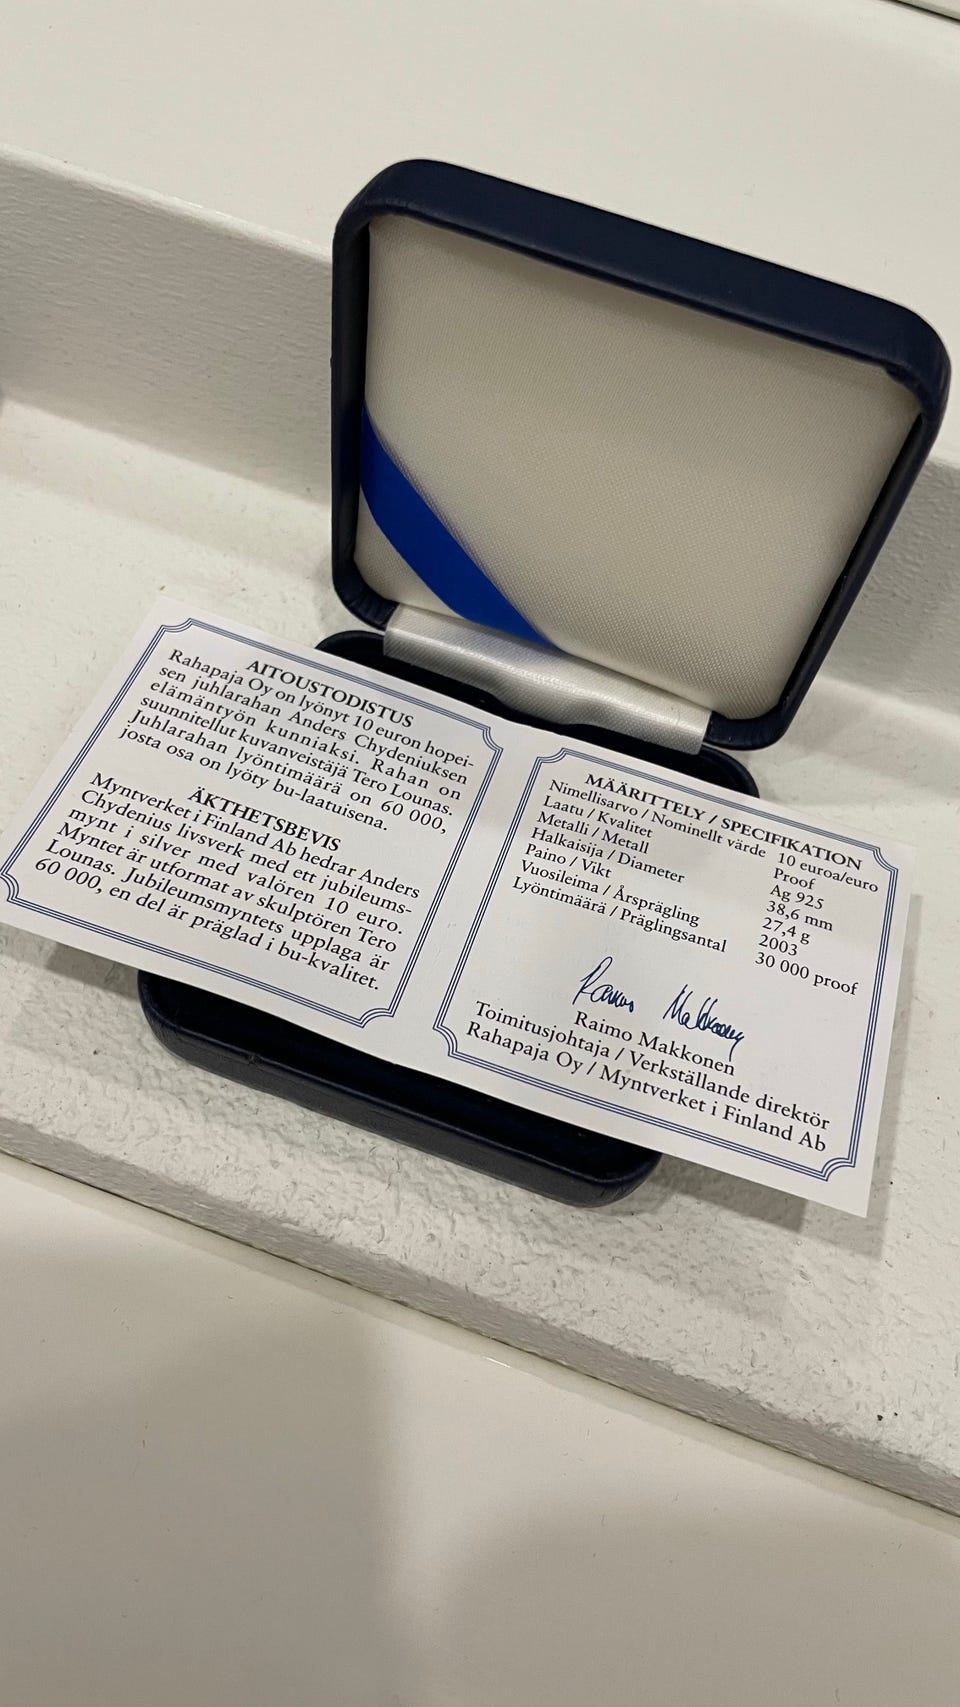 AITOUSTODISTUS
Rahapaja Oy on lyönyt 10 euron hopei-
sen juhlarahan Anders Chydeniuksen
elämäntyön kunniaksi. Rahan on
suunnitellut kuvanveistäjä Tero Lounas.
Juhlarahan lyöntimäärä on 60 000,
josta osa on lyöty bu-laatuisena.
ÄKTHETSBEVIS
Myntverket i Finland Ab hedrar Anders
Chydenius livsverk med ett jubileums-
mynt i silver med valören 10 euro.
Myntet är utformat av skulptören Tero
Lounas. Jubileumsmyntets upplaga är
60 000, en del är präglad i bu-kvalitet.
MÄÄRITTELY / SPECIFIKATION
Nimellisarvo / Nominellt värde 10 euroa/euro
Laatu / Kvalitet Proof
Metalli / Metall Ag 925
Halkaisija / Diameter 38,6 mm
Paino / Vikt 27,4 g
Vuosileima / Årsprägling 2003
Lyöntimäärä / Präglingsantal 30 000 proof
Raimo Makkonen
Raimo Makkonen
Toimitusjohtaja / Verkställande direktör
Rahapaja Oy / Myntverket i Finland Ab